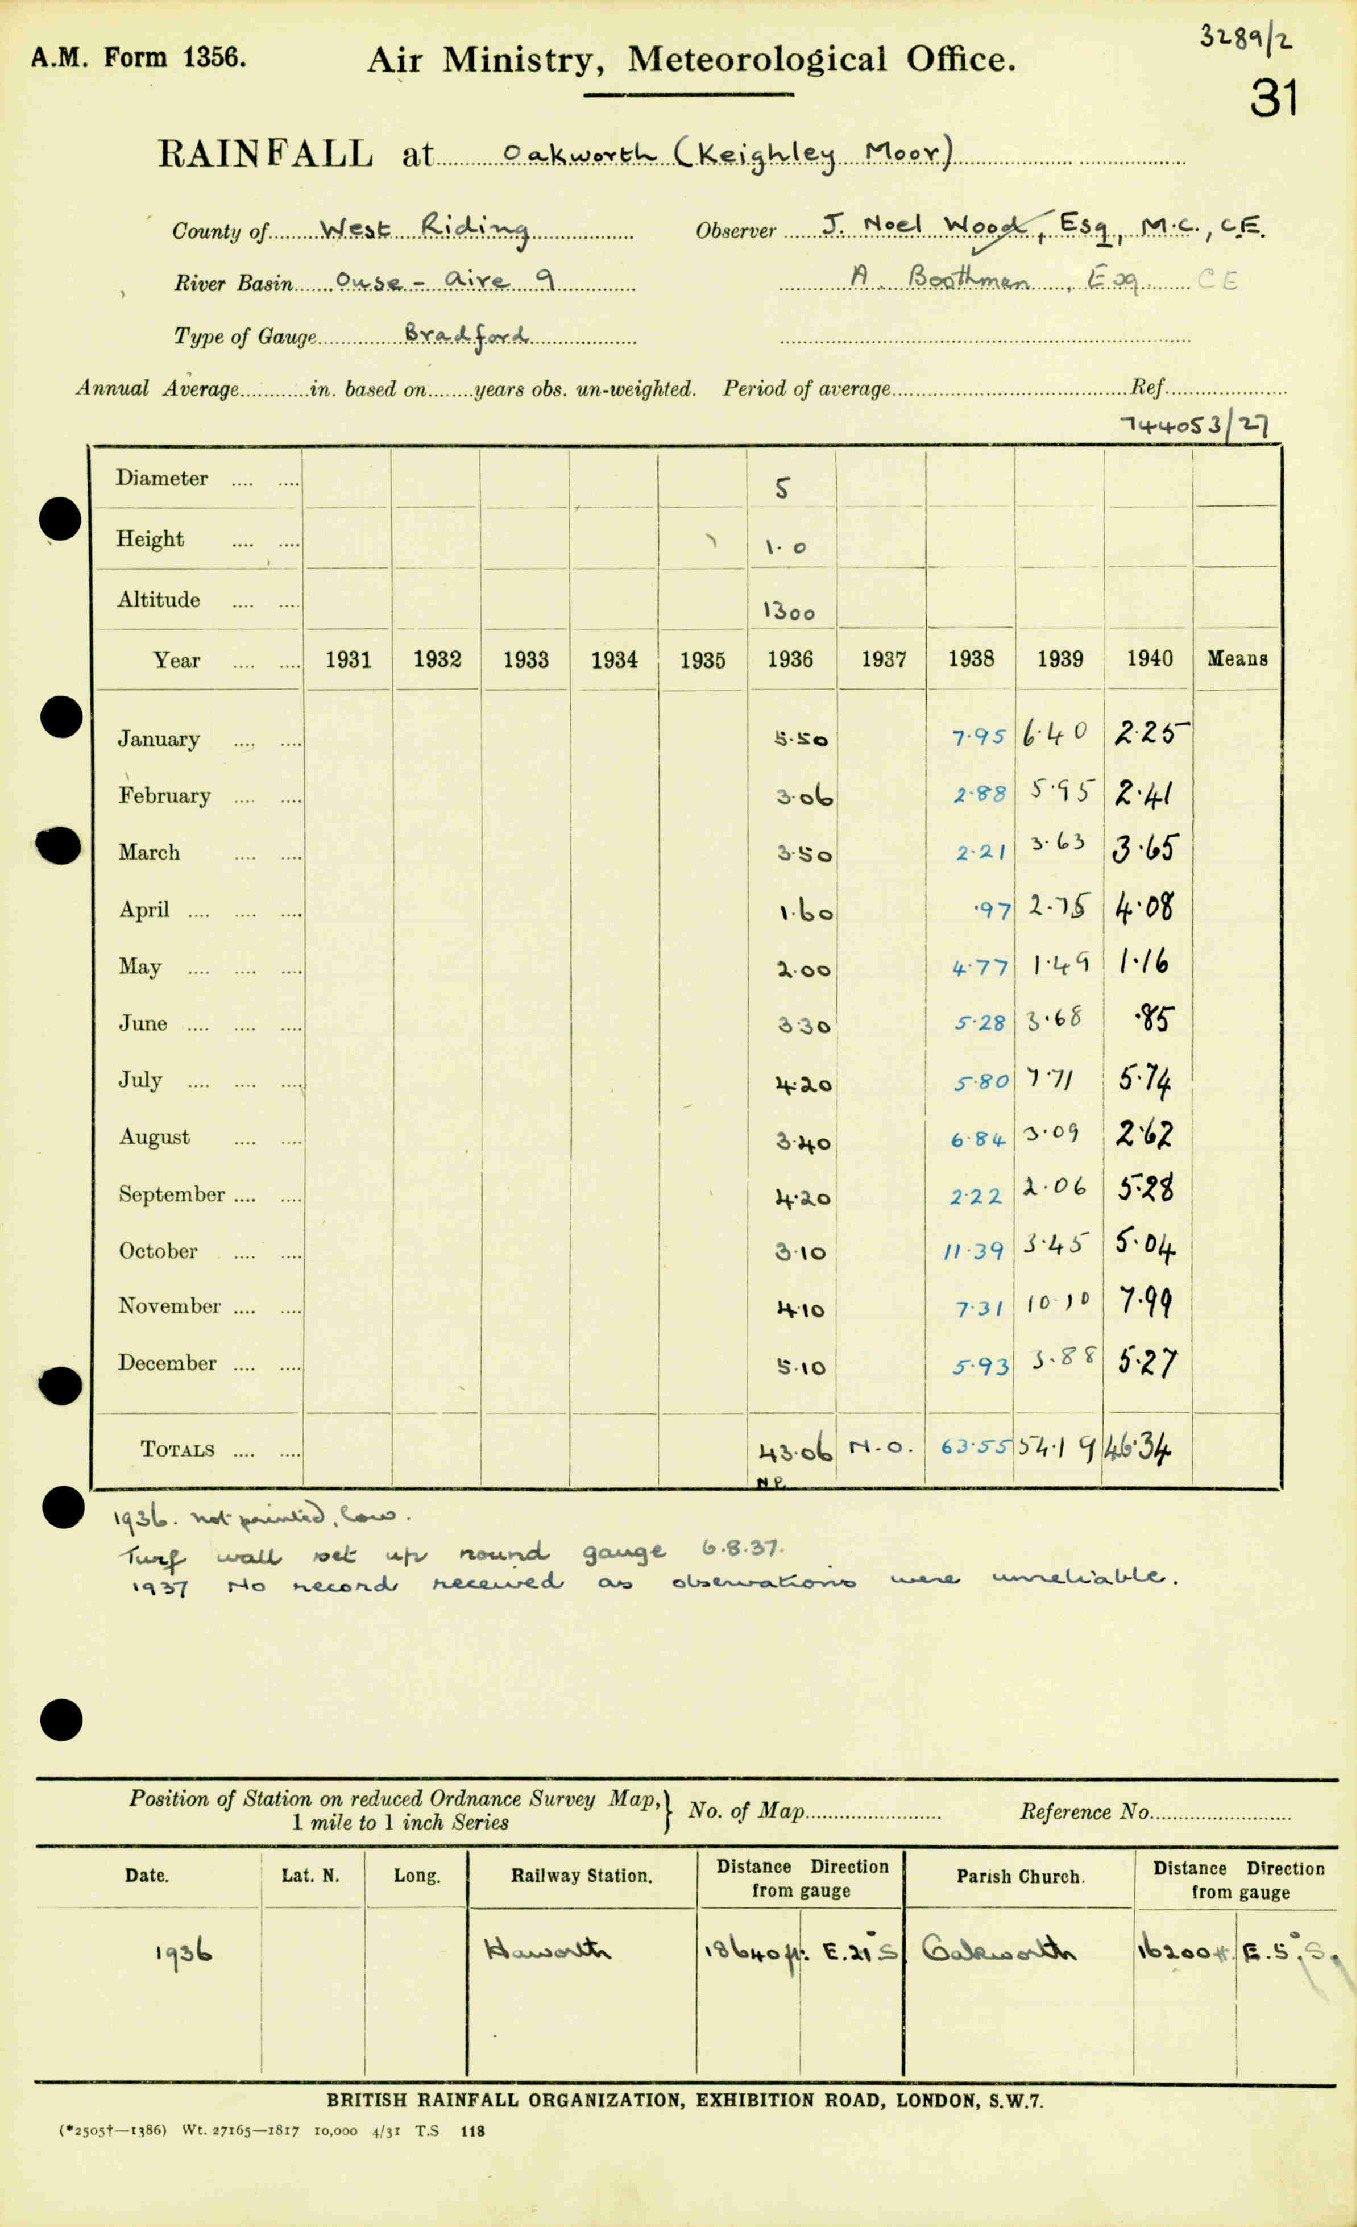 3289/2
A.M. Form 1356. Air Ministry, Meteorological Office.
31
RAINFALL at Oakworth (Keighley Moor)
County of West Riding Observer J. Noel Wood, Esq, M.C., C.E.
River Basin Ouse - Aire 9 A. Boothman, Esq CE
Type of Gauge Bradford
Annual Average in. based on years obs. un-weighted. Period of average Ref.
744053/27
Diameter 5
Height 1.0
Altitude 1300
Year 1931 1932 1933 1934 1935 1936 1937 1938 1939 1940 Means
January 5.50 7.95 6.40 2.25
February 3.06 2.88 5.95 2.41
March 3.50 2.21 3.63 3.65
April 1.60 .97 2.75 4.08
May 2.00 4.77 1.49 1.16
June 3.30 5.28 3.68 .85
July 4.20 5.80 7.71 5.74
August 3.40 6.84 3.09 2.62
September 4.20 2.22 2.06 5.28
October 3.10 11.39 3.45 5.04
November 4.10 7.31 10.10 7.99
December 5.10 5.93 3.88 5.27
TOTALS 43.06 N.O. 63.55 54.19 46.34
N.P.
1936. not printed, low.
Turf wall set up round gauge 6.8.37.
1937 No record received as observations were unreliable.
Position of Station on reduced Ordnance Survey Map,} No. of Map Reference No.
1 mile to 1 inch Series
Date. Lat. N. Long. Railway Station. Distance Direction from gauge Parish Church. Distance Direction from gauge
1936 Haworth 18640 ft. E.21°S Oakworth 16200 ft. E.5°S.
BRITISH RAINFALL ORGANIZATION, EXHIBITION ROAD, LONDON, S.W.7.
(*2505†—1386) Wt. 27165—1817 10,000 4/31 T.S 118